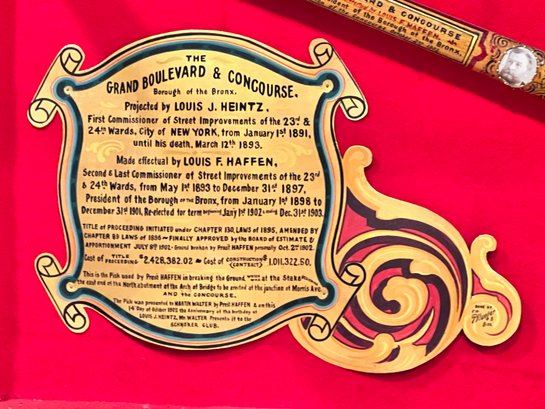 THE
GRAND BOULEVARD & CONCOURSE.
Borough of the Bronx.
Projected by LOUIS J. HEINTZ,
First Commissioner of Street Improvements of the 23rd &
24th Wards, City of NEW YORK, from January 1st 1891,
until his death, March 12th 1893.
Made effectual by LOUIS F. HAFFEN,
Second & Last Commissioner of Street Improvements of the 23rd
& 24th Wards, from May 1st 1893 to December 31st 1897,
President of the Borough OF THE Bronx, from January 1st 1898 to
December 31st 1901, Re-elected for term beginning Jany 1st 1902 & ending Dec. 31st 1903.
TITLE OF PROCEEDING INITIATED UNDER CHAPTER 130, LAWS OF 1895, AMENDED BY
CHAPTER 89 LAWS OF 1896 – FINALLY APPROVED by the BOARD OF ESTIMATE &
APPORTIONMENT JULY 8th 1902 – Ground broken by Prest HAFFEN personally Oct. 2nd 1902.
Cost of TITLE PROCEEDING $2,428,382.02 – Cost of CONSTRUCTION (CONTRACT) $1,011,322.50.
This is the Pick used by Prest HAFFEN in breaking the Ground at the Stake
the east end of the North abutment of the Arch of Bridge to be erected at the junction of Morris Ave.
AND the CONCOURSE.
The Pick was presented to MARTIN WALTER by Prest HAFFEN & on this
14th Day of October 1902 the Anniversary of the birthday of
LOUIS J. HEINTZ, Mr. WALTER Presents it to the
SCHNORER CLUB.
& CONCOURSE
by LOUIS F. HAFFEN,
President of the Borough of the Bronx,
DONE BY